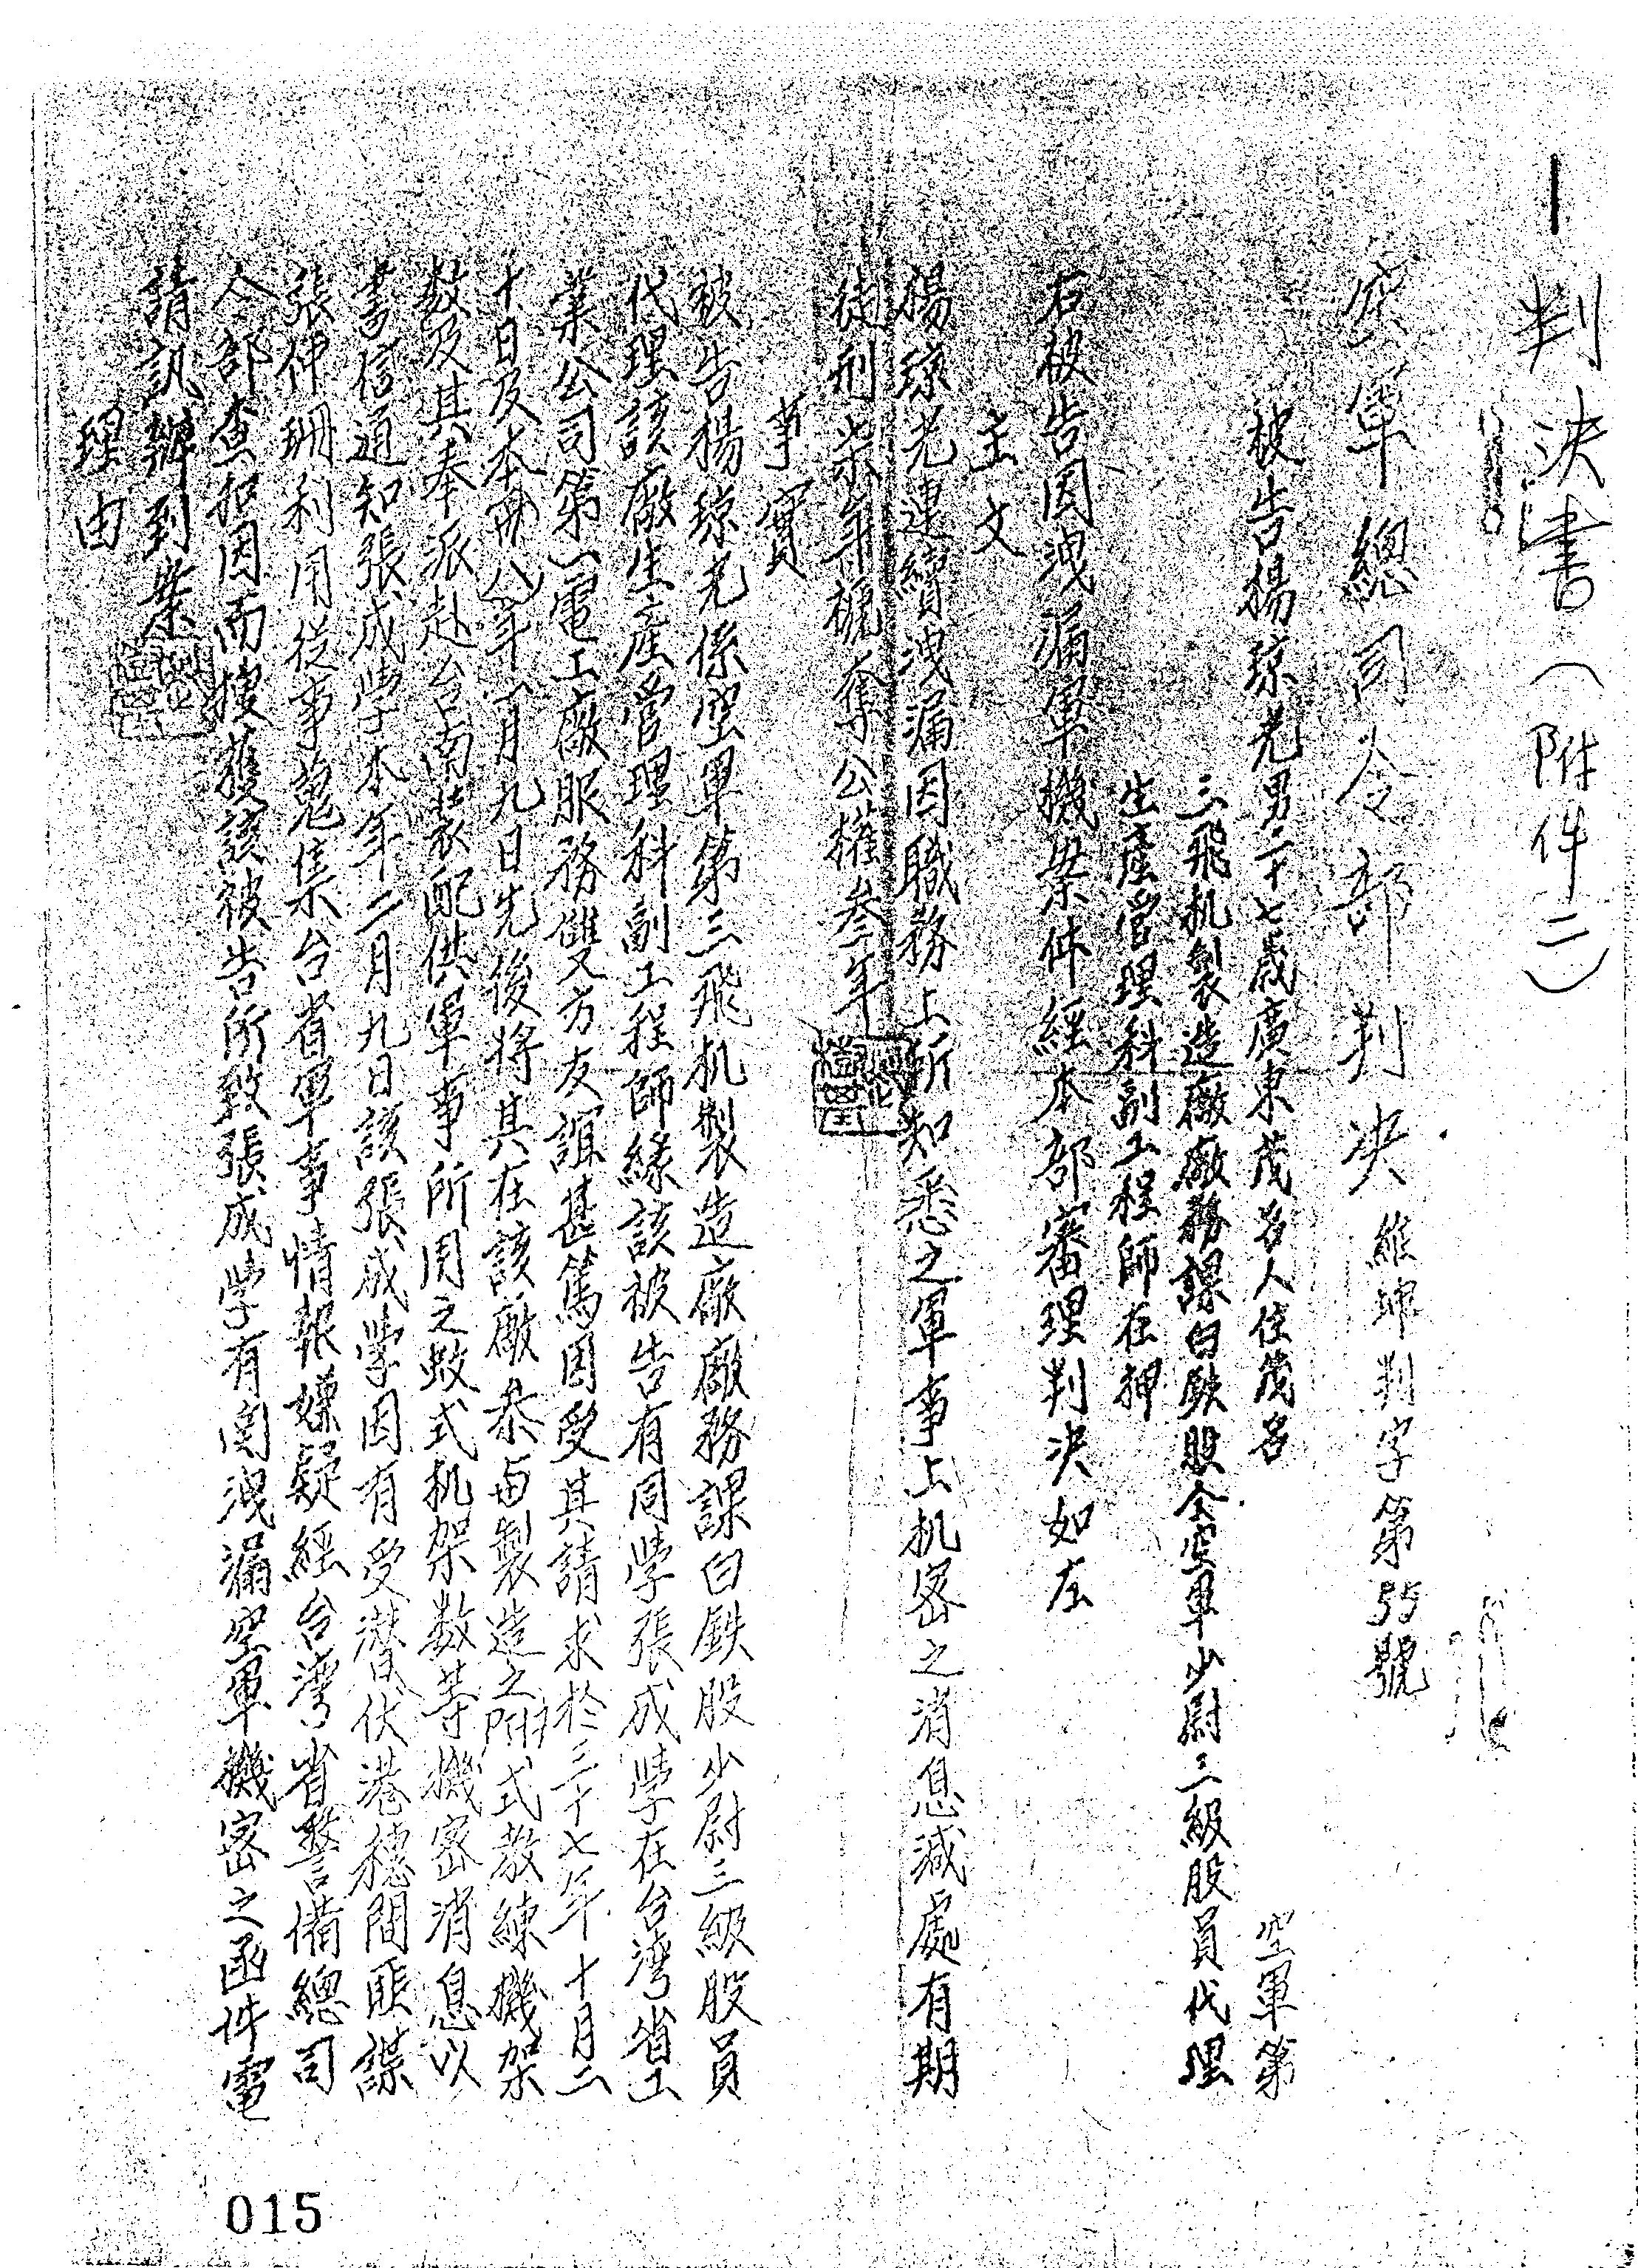 判決書（附件二）
空軍總司令部判決 維坤判字第55號
被告楊琼光男二十七歲廣東茂名人住茂名 空軍第
三飛机製造廠廠務課白鉄股仝空軍少尉三級股員代理
生產管理科副工程師在押
右被告因洩漏軍機案件經本部審理判決如左
主文
楊琼光連續洩漏因職務上所知悉之軍事上机密之消息減處有期
徒刑柒年褫奪公權叁年
事實
被告楊琼光係空軍第三飛机製造廠廠務課白鉄股少尉三級股員
代理該廠生產管理科副工程師緣該被告有同學張成學在台灣省工
業公司第一電工廠服務雙方友誼甚篤因受其請求於三十七年十月二
十日及本（卅八）年一月九日先後將其在該廠參與製造之附式教練機架
数及其奉派赴台南裝配供軍事所用之蚊式机架数等機密消息以
書信通知張成學本年二月九日該張成學因有受潛伏港穗間匪諜
張仲珊利用從事蒐集台省軍事情報嫌疑經台灣省警備總司
令部查扣因而搜獲該被告所致張成學有関洩漏空軍機密之函件電
請訊辦到案
理由
015